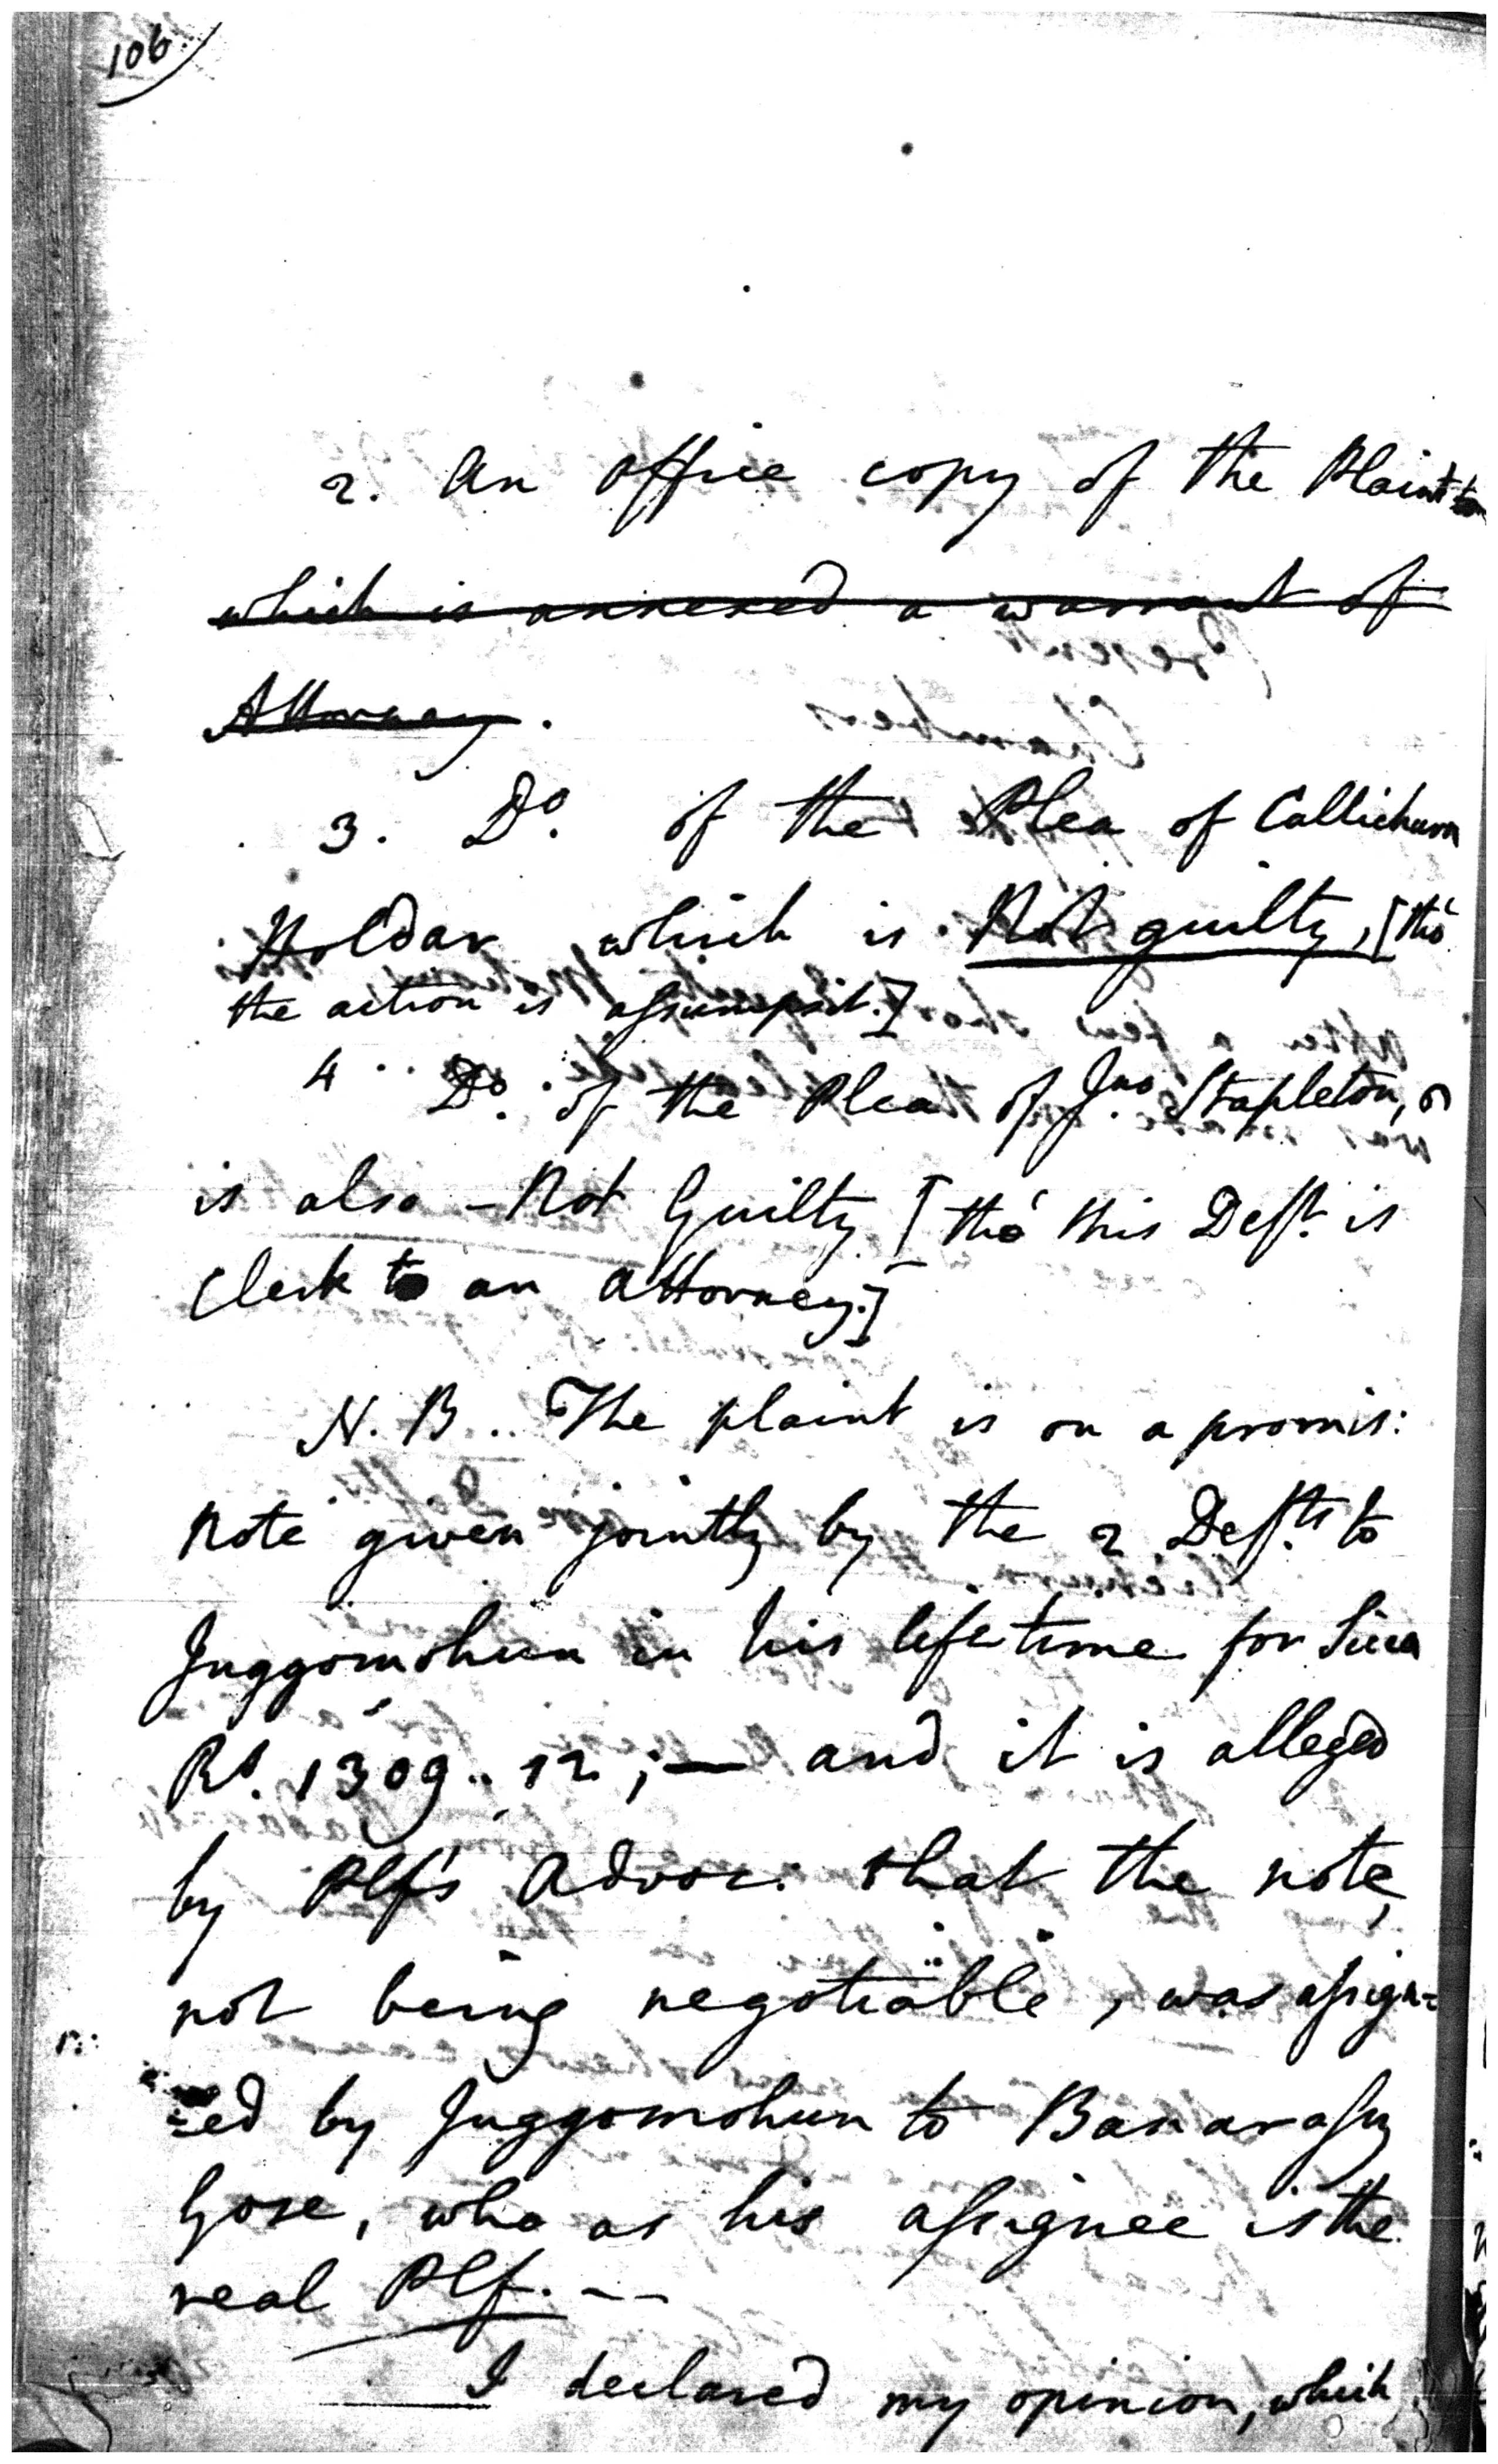 106
2. An office copy of the Plaint to
which is annexed a warrant of
Attorney.
3. Do. of the Plea of Callichurn
Holdar which is Not guilty, [tho'
the action is assumpsit.]
4 .. Do. of the Plea of Jno. Stapleton, &
is also - Not Guilty [tho' this Deft. is
Clerk to an Attorney.]
N. B .. The plaint is on a promis:
Note given jointly by the 2 Defts. to
Juggomohun in his lifetime for Sicca
Rs. 1309 .. 12 ; — and it is alleged
by Plf's Advoc. that the note,
not being negotiable, was assign=
=ed by Juggomohun to Banarassy
Gose, who as his assignee is the
real Plf. —
I declared my opinion, which